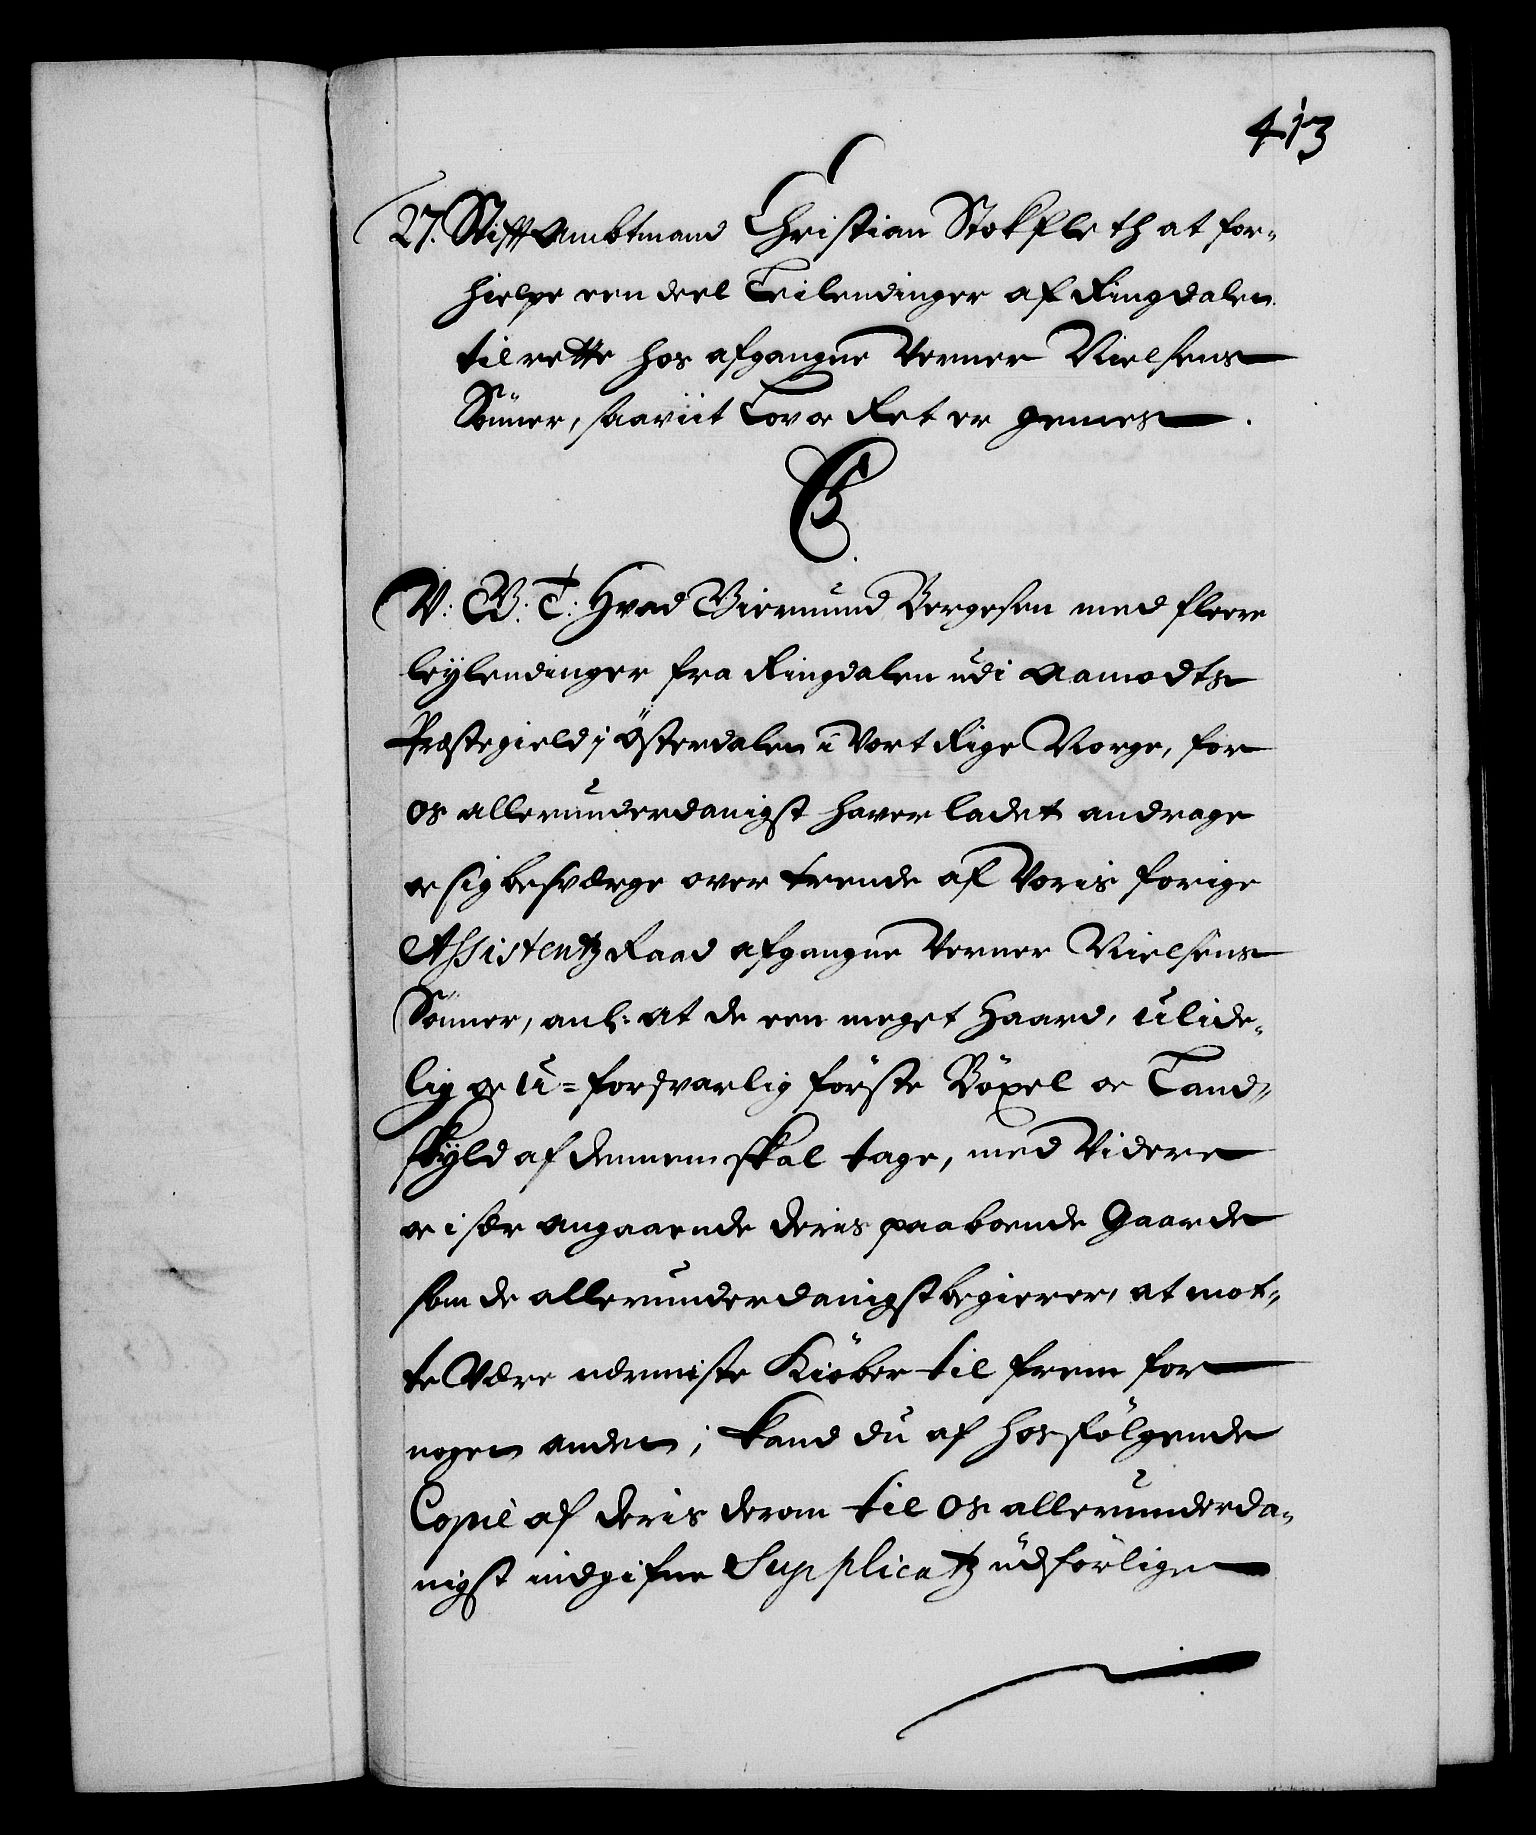 413
27. Stifft Ambtmand Christian Stokfleth at for-
hielpe een deel Leilendinger af Ringdalen
til rette hos afgangne Verner Nielsens
Sönner, saaviit Lov oc Ret er gemes.
C5
V: G: T: Hvad Biermund Bergesen med fleere
leylendinger fra Ringdalen udi Aamodts
Præstegield i Österdalen i Vort Rige Norge, for
os allerunderdanigst haver ladet andrage
oc sig besværge over trende af Voris forige
Assistentz Raad afgangne Verner Nielsens
Sönner, anl: at de een meget haard, ulide-
lig oc u=forsvarlig förste Böxel oc Land-
skyld af dennem skal tage, med Videre
oc især angaaende deris paaboende Gaarde
som de allerunderdanigst begierer, at mot-
te Være nermiste Kiöber til frem for
nogen anden; kand du af hosfölgende
Copie af deris derom til Os allerunderda-
nigst indgifne Supplicatz udförligen